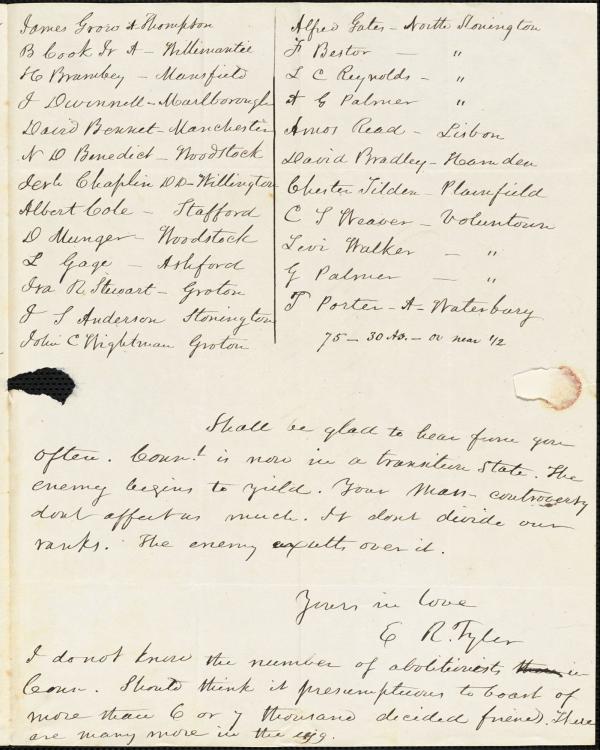 James Grow A Thompson
B Cook Jr A - Willimantic
H Brambey - Mansfield
J Dwinnell - Marlborough
David Bennet - Manchester
N D Benedict - Woodstock
Chaplin DD - Willington
Albert Cole - Stafford
D Munger - Woodstock
L Gage - Ashford
Ira R. Stewart - Groton
J S Anderson Stonington
John C Wightman Groton
Alfred Gates - North Stonington
F Bestor - "
L C Reynolds - "
A G Palmer "
Amos Read - Lisbon
David Bradley - Hamden
Chester Tilden - Plainfield
C S Weaver - Voluntown
Levi Walker - "
G Palmer - "
T Porter - A - Waterbury
75 - 30 As. - or near 1/2
Shall be glad to hear from you
often. Conn.t is now in a transition state. The
enemy begins to yield. Your Mass - controversy
dont affect us much. It dont divide our
ranks. The enemy exults over it.
Yours in love
E R. Tyler
I do not know the number of abolitionists in
Conn. Should think it presumptuous to boast of
more than 6 or 7 thousand decided friends. There
are many more in the egg.